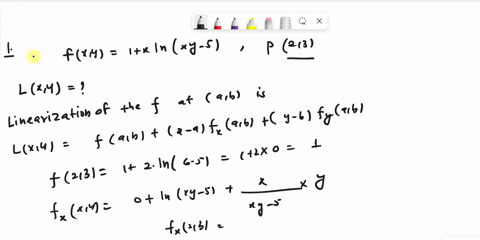 1. f(x,y) = 1+x ln(xy-5) , P (2,3)
L(x,y) = ?
Linearization of the f at (a,b) is
L(x,y) = f(a,b) + (x-a) fx(a,b) + (y-b) fy(a,b)
f(2,3) = 1+ 2·ln(6-5) = 1+2×0 = 1
fx(x,y) = 0 + ln(xy-5) + x/(xy-5) × y
fx(2,3) =